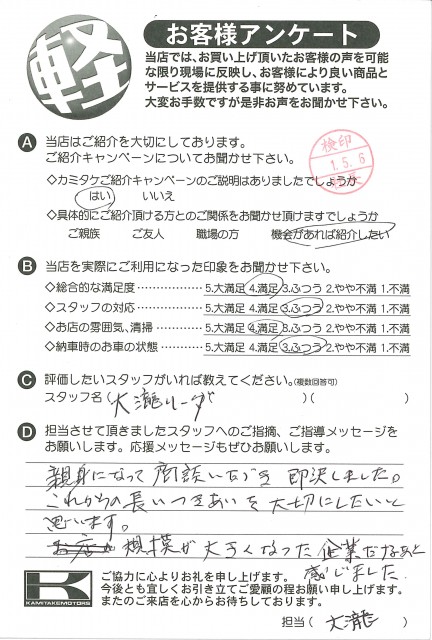 軽
お客様アンケート
当店では、お買い上げ頂いたお客様の声を可能
な限り現場に反映し、お客様により良い商品と
サービスを提供する事に努めています。
大変お手数ですが是非お声をお聞かせ下さい。
A 当店はご紹介を大切にしております。
ご紹介キャンペーンについてお聞かせ下さい。
検印
1.5.6
◇カミタケご紹介キャンペーンのご説明はありましたでしょうか
はい いいえ
◇具体的にご紹介頂ける方とのご関係をお聞かせ頂けますでしょうか
ご親族 ご友人 職場の方 機会があれば紹介したい
B 当店を実際にご利用になった印象をお聞かせ下さい。
◇総合的な満足度……………5.大満足 4.満足 3.ふつう 2.やや不満 1.不満
◇スタッフの対応……………5.大満足 4.満足 3.ふつう 2.やや不満 1.不満
◇お店の雰囲気、清掃………5.大満足 4.満足 3.ふつう 2.やや不満 1.不満
◇納車時のお車の状態………5.大満足 4.満足 3.ふつう 2.やや不満 1.不満
C 評価したいスタッフがいれば教えてください。(複数回答可)
スタッフ名(大瀧リーダー)( )
D 担当させて頂きましたスタッフへのご指摘、ご指導メッセージを
お願いします。応援メッセージもぜひお願いします。
親身になって商談いただき即決しました。
これからの長いつきあいを大切にしたいと
思います。
規模が大きくなった企業だなあと
感じました.
K
KAMITAKE MOTORS
ご協力に心よりお礼を申し上げます。
今後とも宜しくお引き立てご愛顧の程お願い申し上げます。
またのご来店を心からお待ちしております。
担当(大瀧)